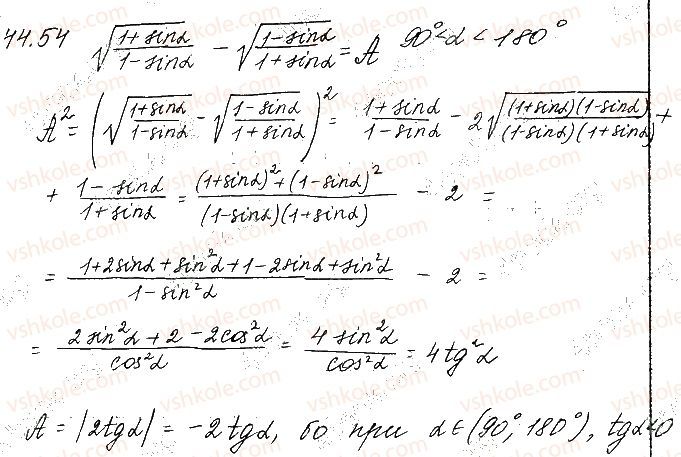 44.54 √((1+sinα)/(1-sinα)) - √((1-sinα)/(1+sinα)) = A 90°<α<180°
A² = (√((1+sinα)/(1-sinα)) - √((1-sinα)/(1+sinα)))² = (1+sinα)/(1-sinα) - 2√((1+sinα)(1-sinα)/(1-sinα)(1+sinα)) +
+ (1-sinα)/(1+sinα) = ((1+sinα)²+(1-sinα)²)/((1-sinα)(1+sinα)) - 2 =
= (1+2sinα+sin²α+1-2sinα+sin²α)/(1-sin²α) - 2 =
= (2sin²α+2-2cos²α)/cos²α = 4sin²α/cos²α = 4tg²α
A = |2tgα| = -2tgα, бо при α∈(90°,180°), tgα<0
vshkole.com